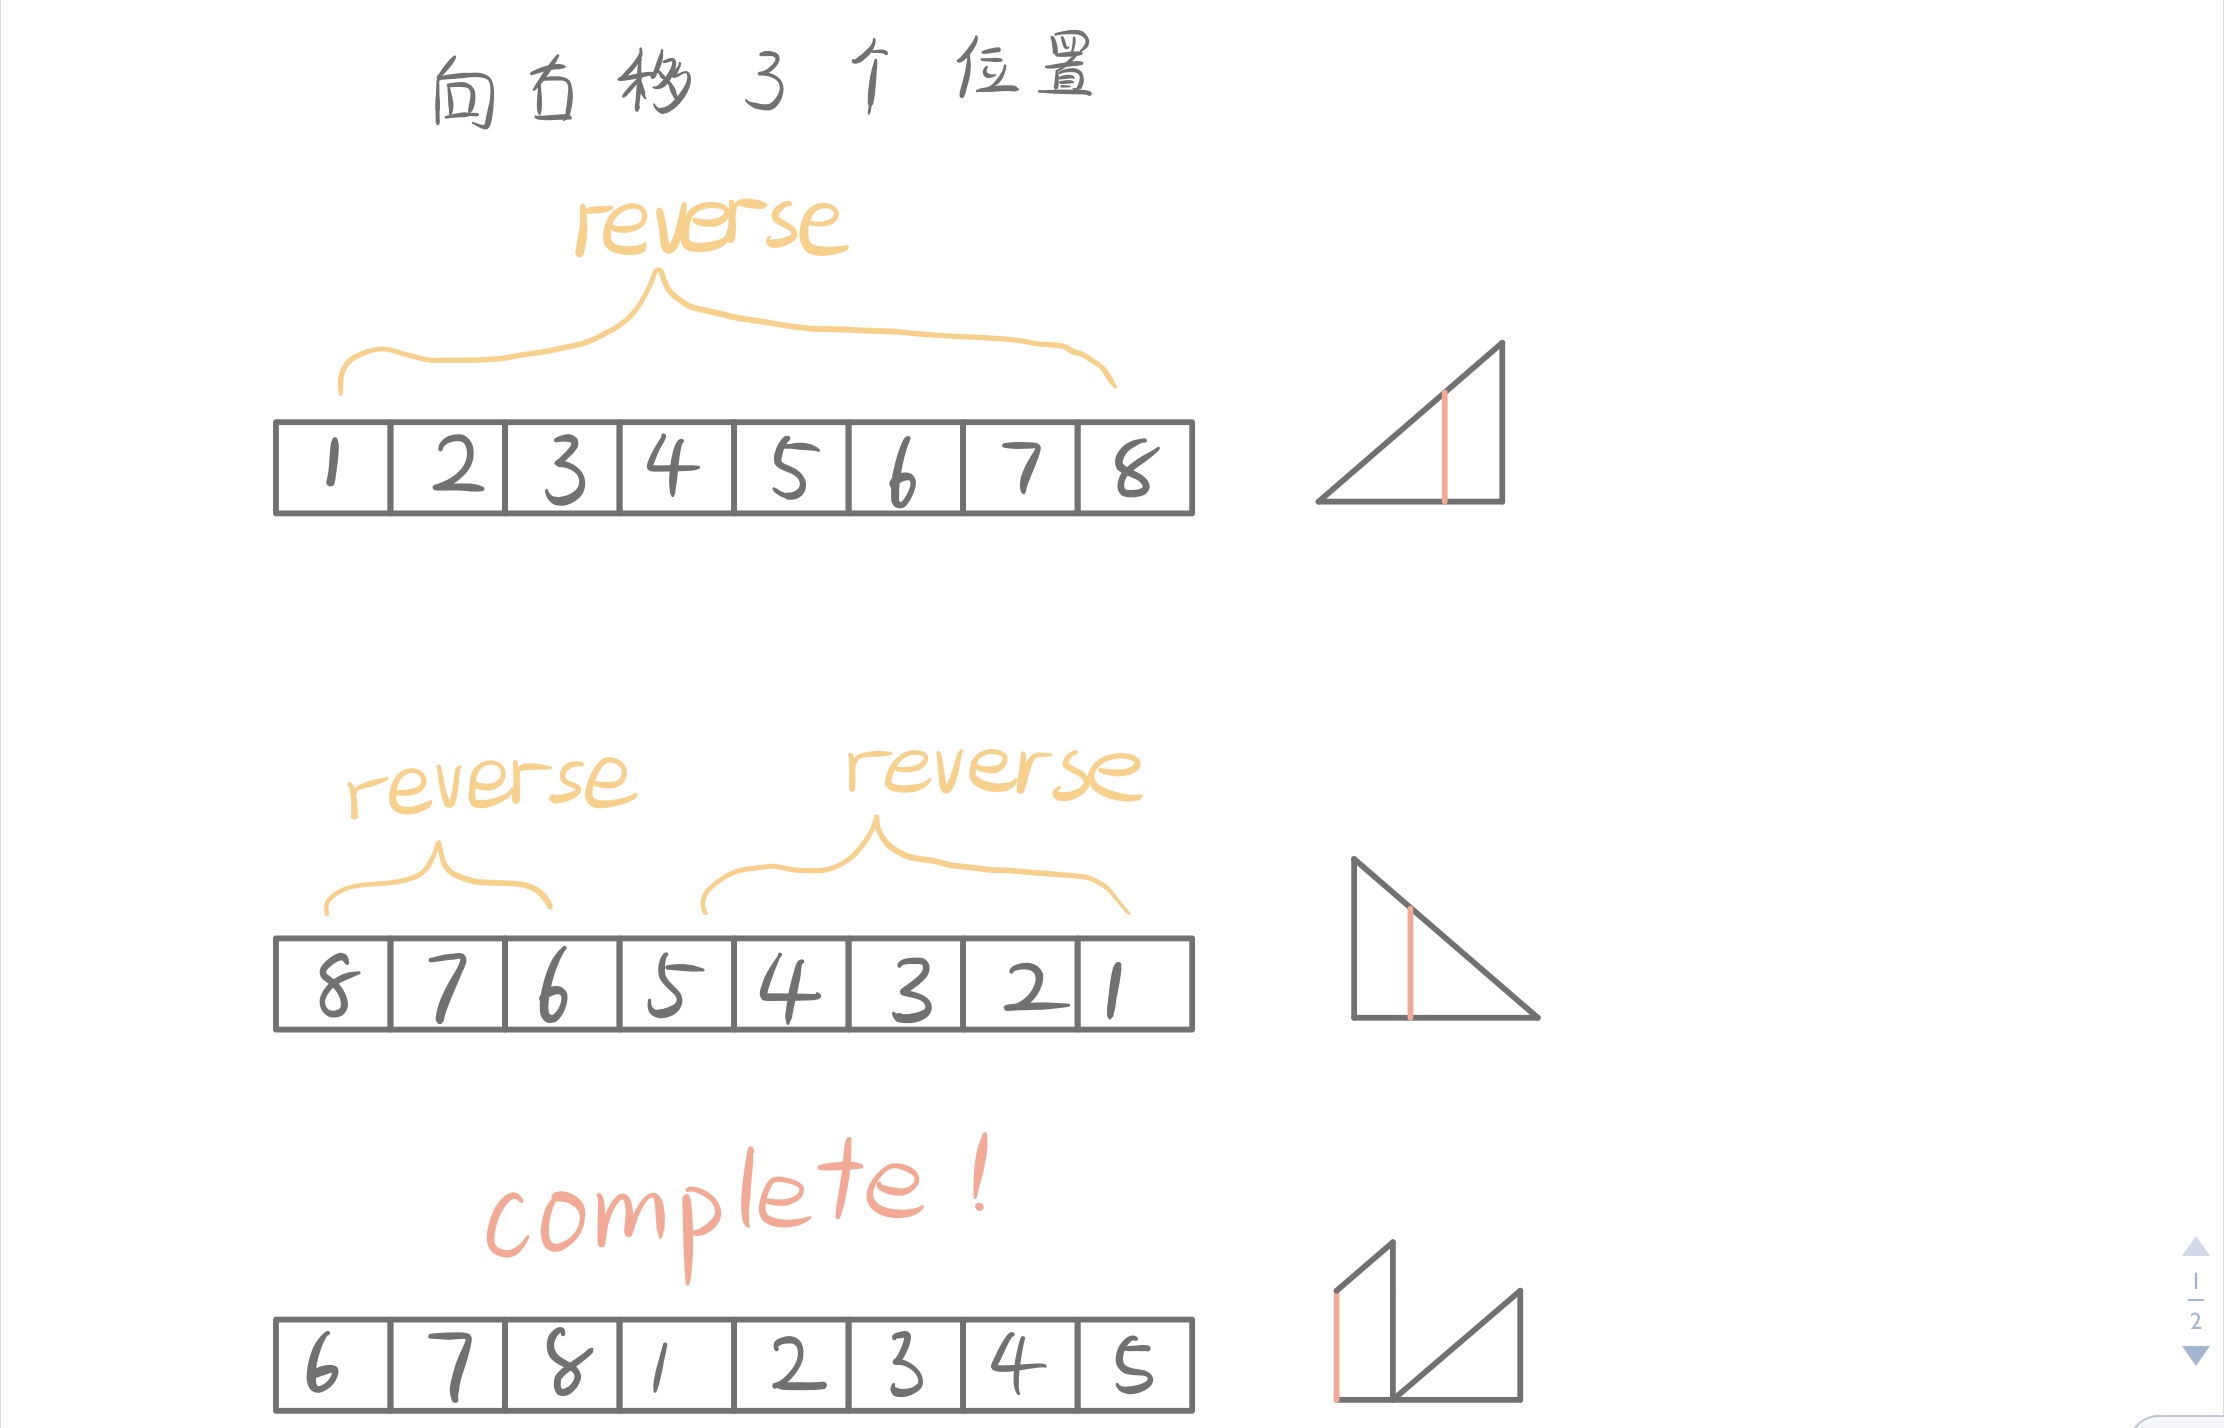 向右移 3 个 位置
reverse
1 2 3 4 5 6 7 8
reverse reverse
8 7 6 5 4 3 2 1
complete!
6 7 8 1 2 3 4 5
1
2